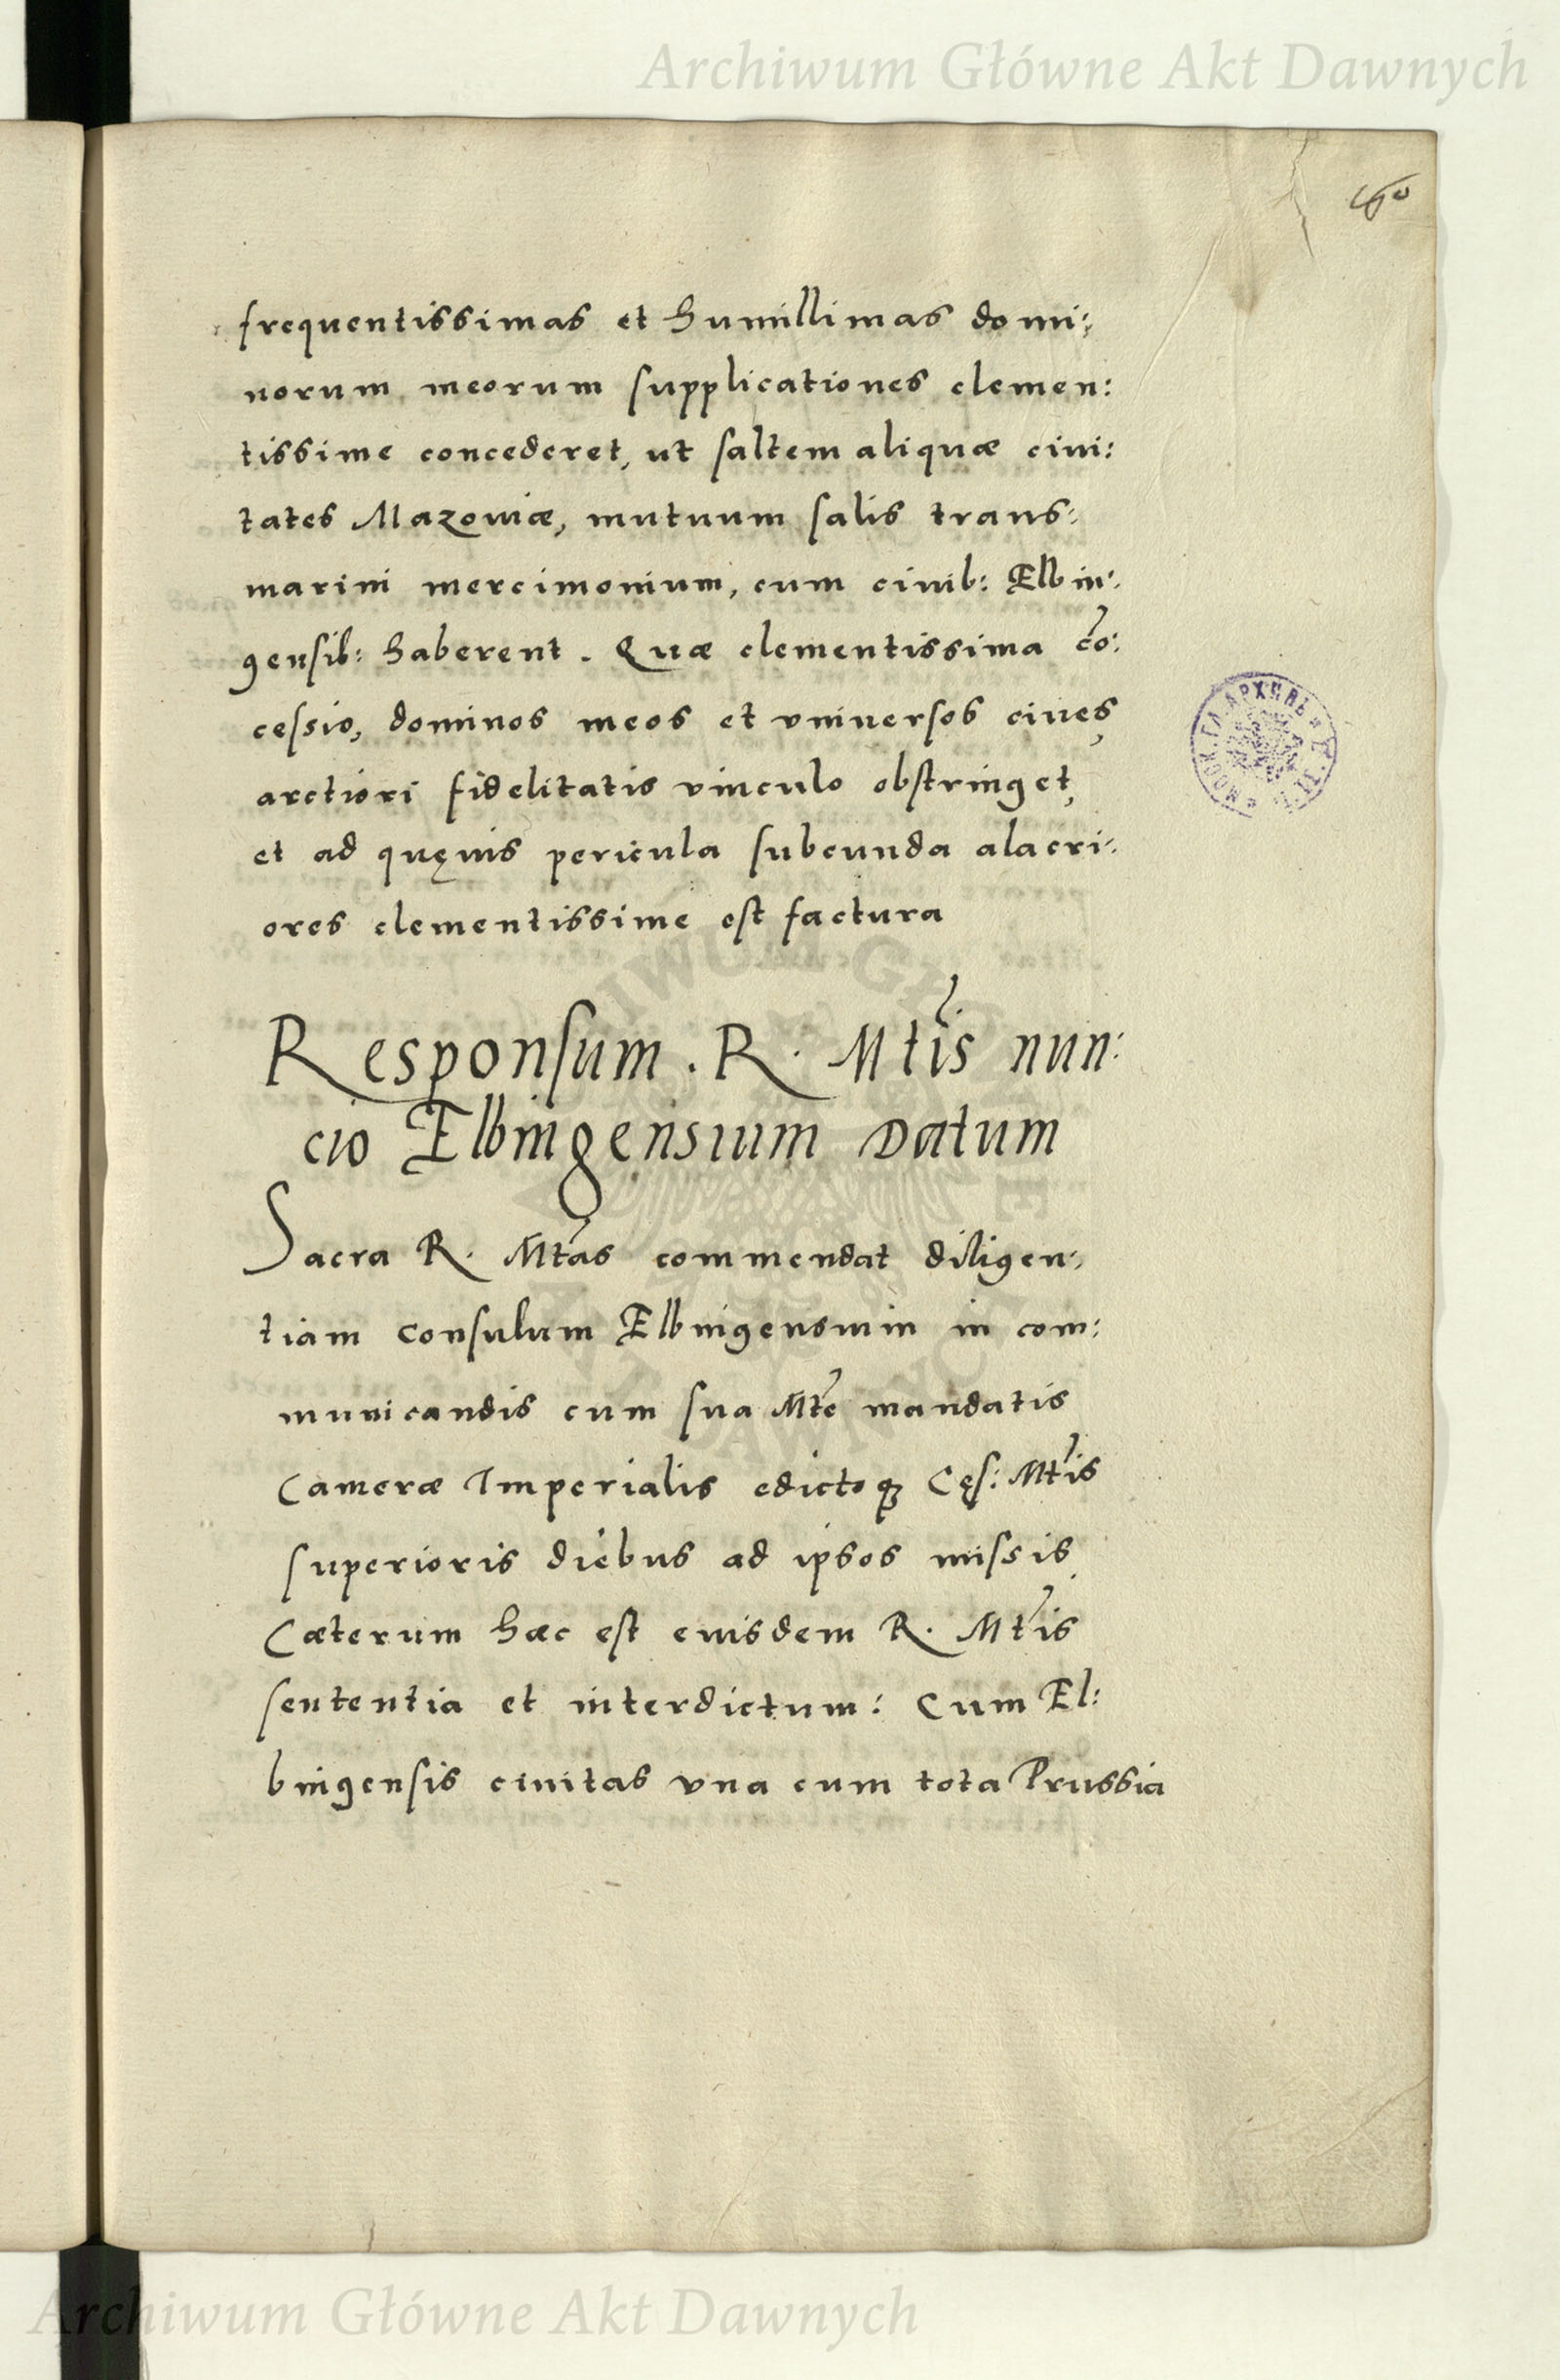 Archiwum Główne Akt Dawnych
frequentissimas et humillimas domi:
norum meorum supplicationes clemen:
tissime concederet, ut saltem aliquæ ciui:
tates Mazouiæ, mutuum salis trans:
marini mercimonium, cum ciuib: Elbin:
gensib: haberent. Quæ clementissima cõ:
cessio, dominos meos et vniuersos ciues,
arctiori fidelitatis vinculo obstringet,
et ad quęuis pericula subeunda alacri:
ores clementissime est factura
Responsum. R. Mtis nun:
cio Elbingensium Datum
Sacra R. Mtas commendat diligen:
tiam Consulum Elbingensium in com:
municandis cum sua Mte mandatis
Cameræ Imperialis edictoqȝ Cęs: Mtis
superioris diebus ad ipsos missis,
Cæterum hæc est eiusdem R. Mtis
sententia et interdictum: Cum El:
bingensis ciuitas vna cum tota Prussia
Archiwum Główne Akt Dawnych